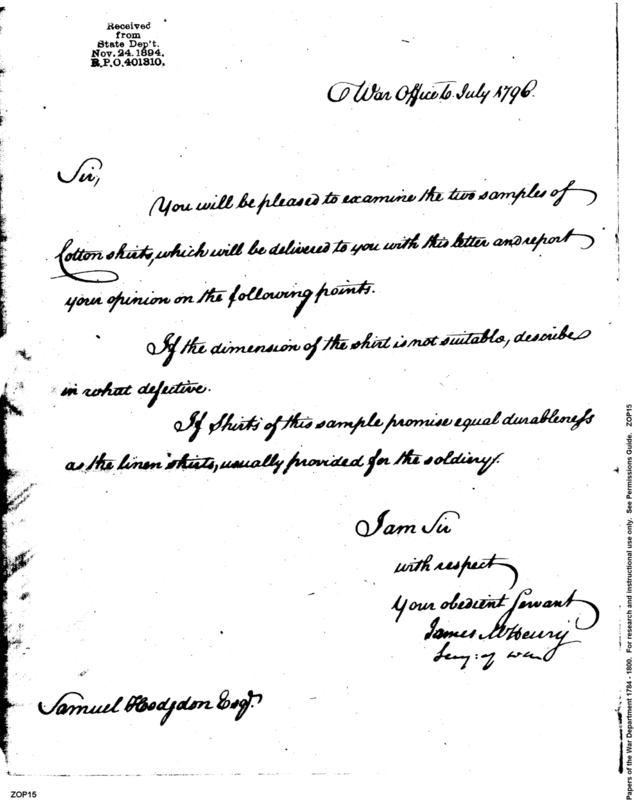 Received
from
State Dep't.
Nov. 24. 1894.
R.P.O. 401310.
War Office 6 July 1796.
Sir,
You will be pleased to examine the two samples of
Cotton shirts, which will be delivered to you with this letter and report
your opinion on the following points.
If the dimension of the shirt is not suitable, describe
in what defective.
If Shirts of this sample promise equal durableness
as the linen shirts, usually provided for the soldiery.
I am Sir
with respect
Your obedient Servant
James McHenry
Secy: of War
Samuel Hodgdon Esqr.
ZOP15
Papers of the War Department 1784 - 1800. For research and instructional use only. See Permissions Guide. ZOP15